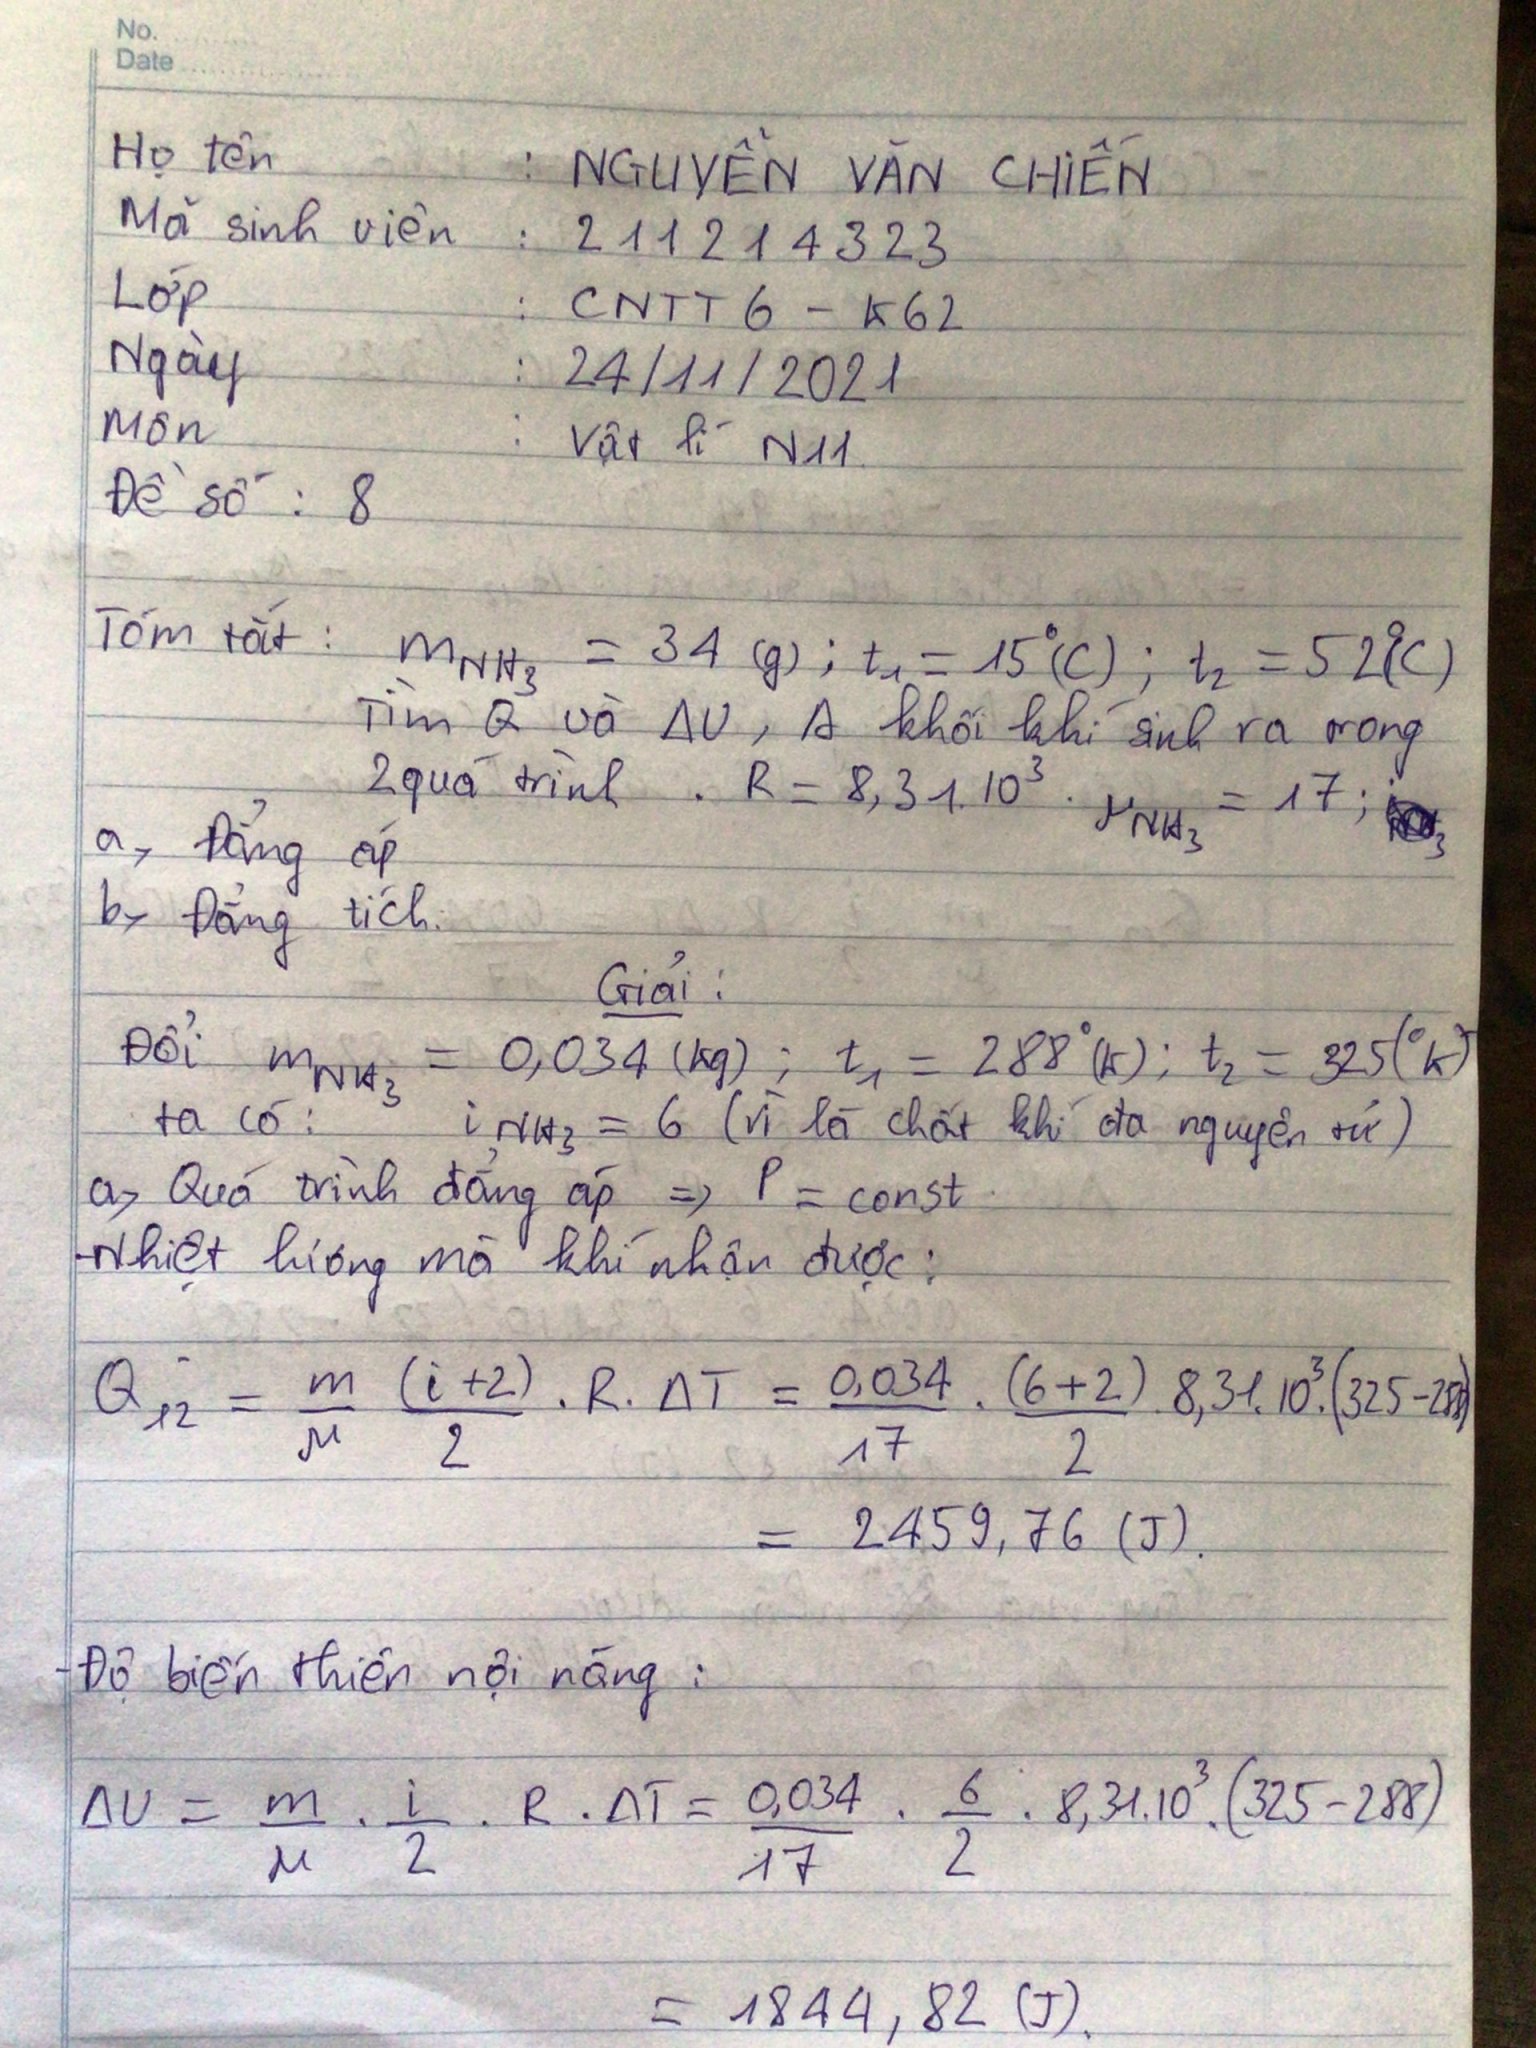 No. ..........
Date ..................
Họ tên : NGUYỄN VĂN CHIẾN
Mã sinh viên : 211214323
Lớp : CNTT 6 - K62
Ngày : 24/11/2021
Môn : Vật lí N11
Đề số : 8
Tóm tắt : m_NH₃ = 34 (g) ; t₁ = 15°(C) ; t₂ = 52°(C)
Tìm Q và ΔU, A khối khí sinh ra trong
2 quá trình . R = 8,31.10³ . μ_NH₃ = 17 ;
a, Đẳng áp
b, Đẳng tích.
Giải :
Đổi m_NH₃ = 0,034 (kg) ; t₁ = 288°(K) ; t₂ = 325(°K)
ta có : i_NH₃ = 6 (vì là chất khí đa nguyên tử)
a, Quá trình đẳng áp => P = const
- Nhiệt lượng mà khí nhận được :
Q₁₂ = m/μ (i+2)/2 . R . ΔT = 0,034/17 . (6+2)/2 . 8,31.10³.(325-288)
= 2459,76 (J).
- Độ biến thiên nội năng :
ΔU = m/μ . i/2 . R . ΔT = 0,034/17 . 6/2 . 8,31.10³.(325-288)
= 1844,82 (J).